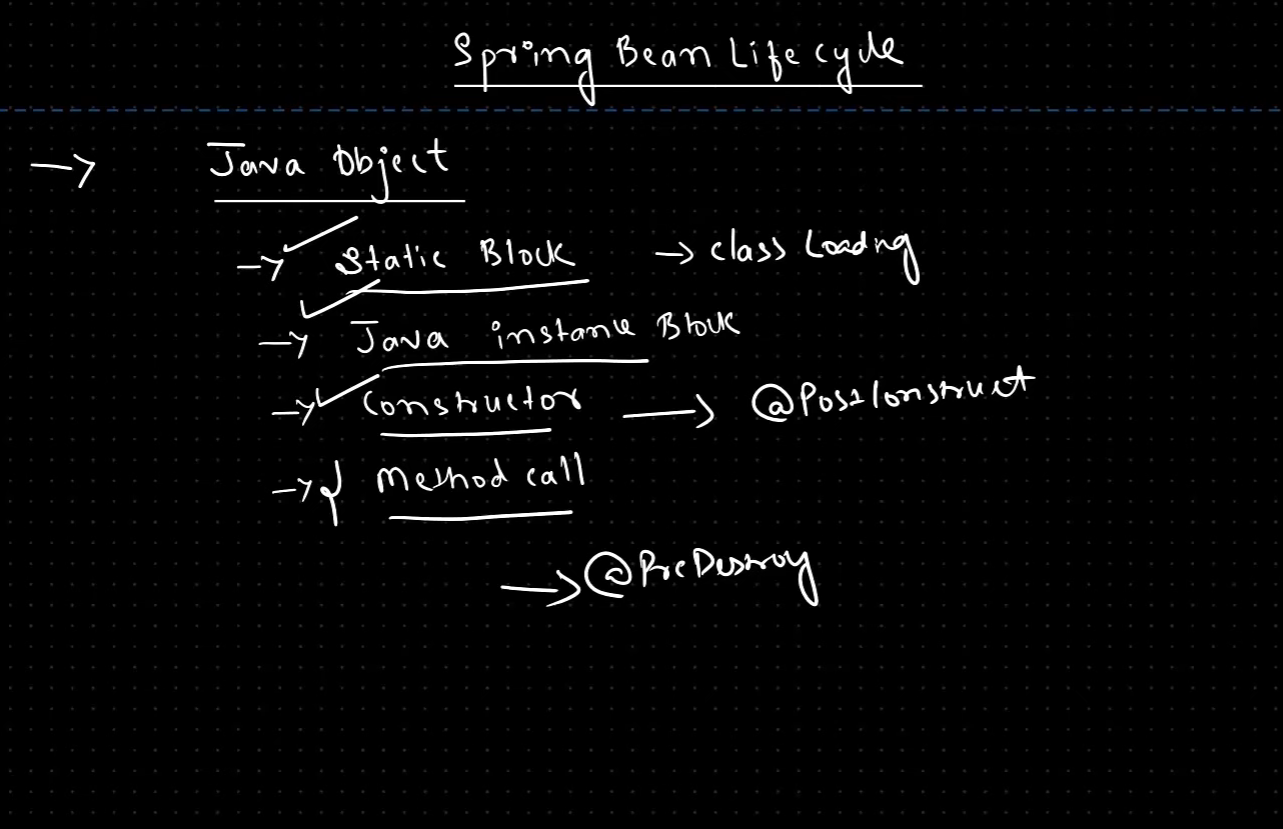 Spring Bean Lifecycle
→ Java Object
→ Static Block → class Loading
→ Java instance Block
→ Constructor → @PostConstruct
→ Method call
→ @PreDestroy